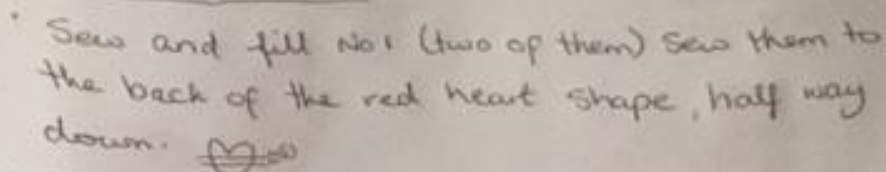 • Sew and fill No 1 (two of them) Sew them to
the back of the red heart shape, half way
down.